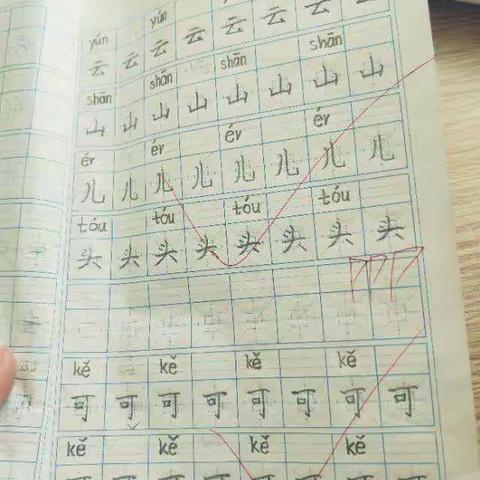 yún yún
云 云 云 云 云 云 云 云
shān shān shān shān
山 山 山 山 山 山 山 山
ér ér ér ér
儿 儿 儿 儿 儿 儿 儿 儿
tóu tóu tóu tóu
头 头 头 头 头 头 头 头
kě kě kě kě
可 可 可 可 可 可 可 可
kě kě kě kě
可 可 可 可 可 可 可 可